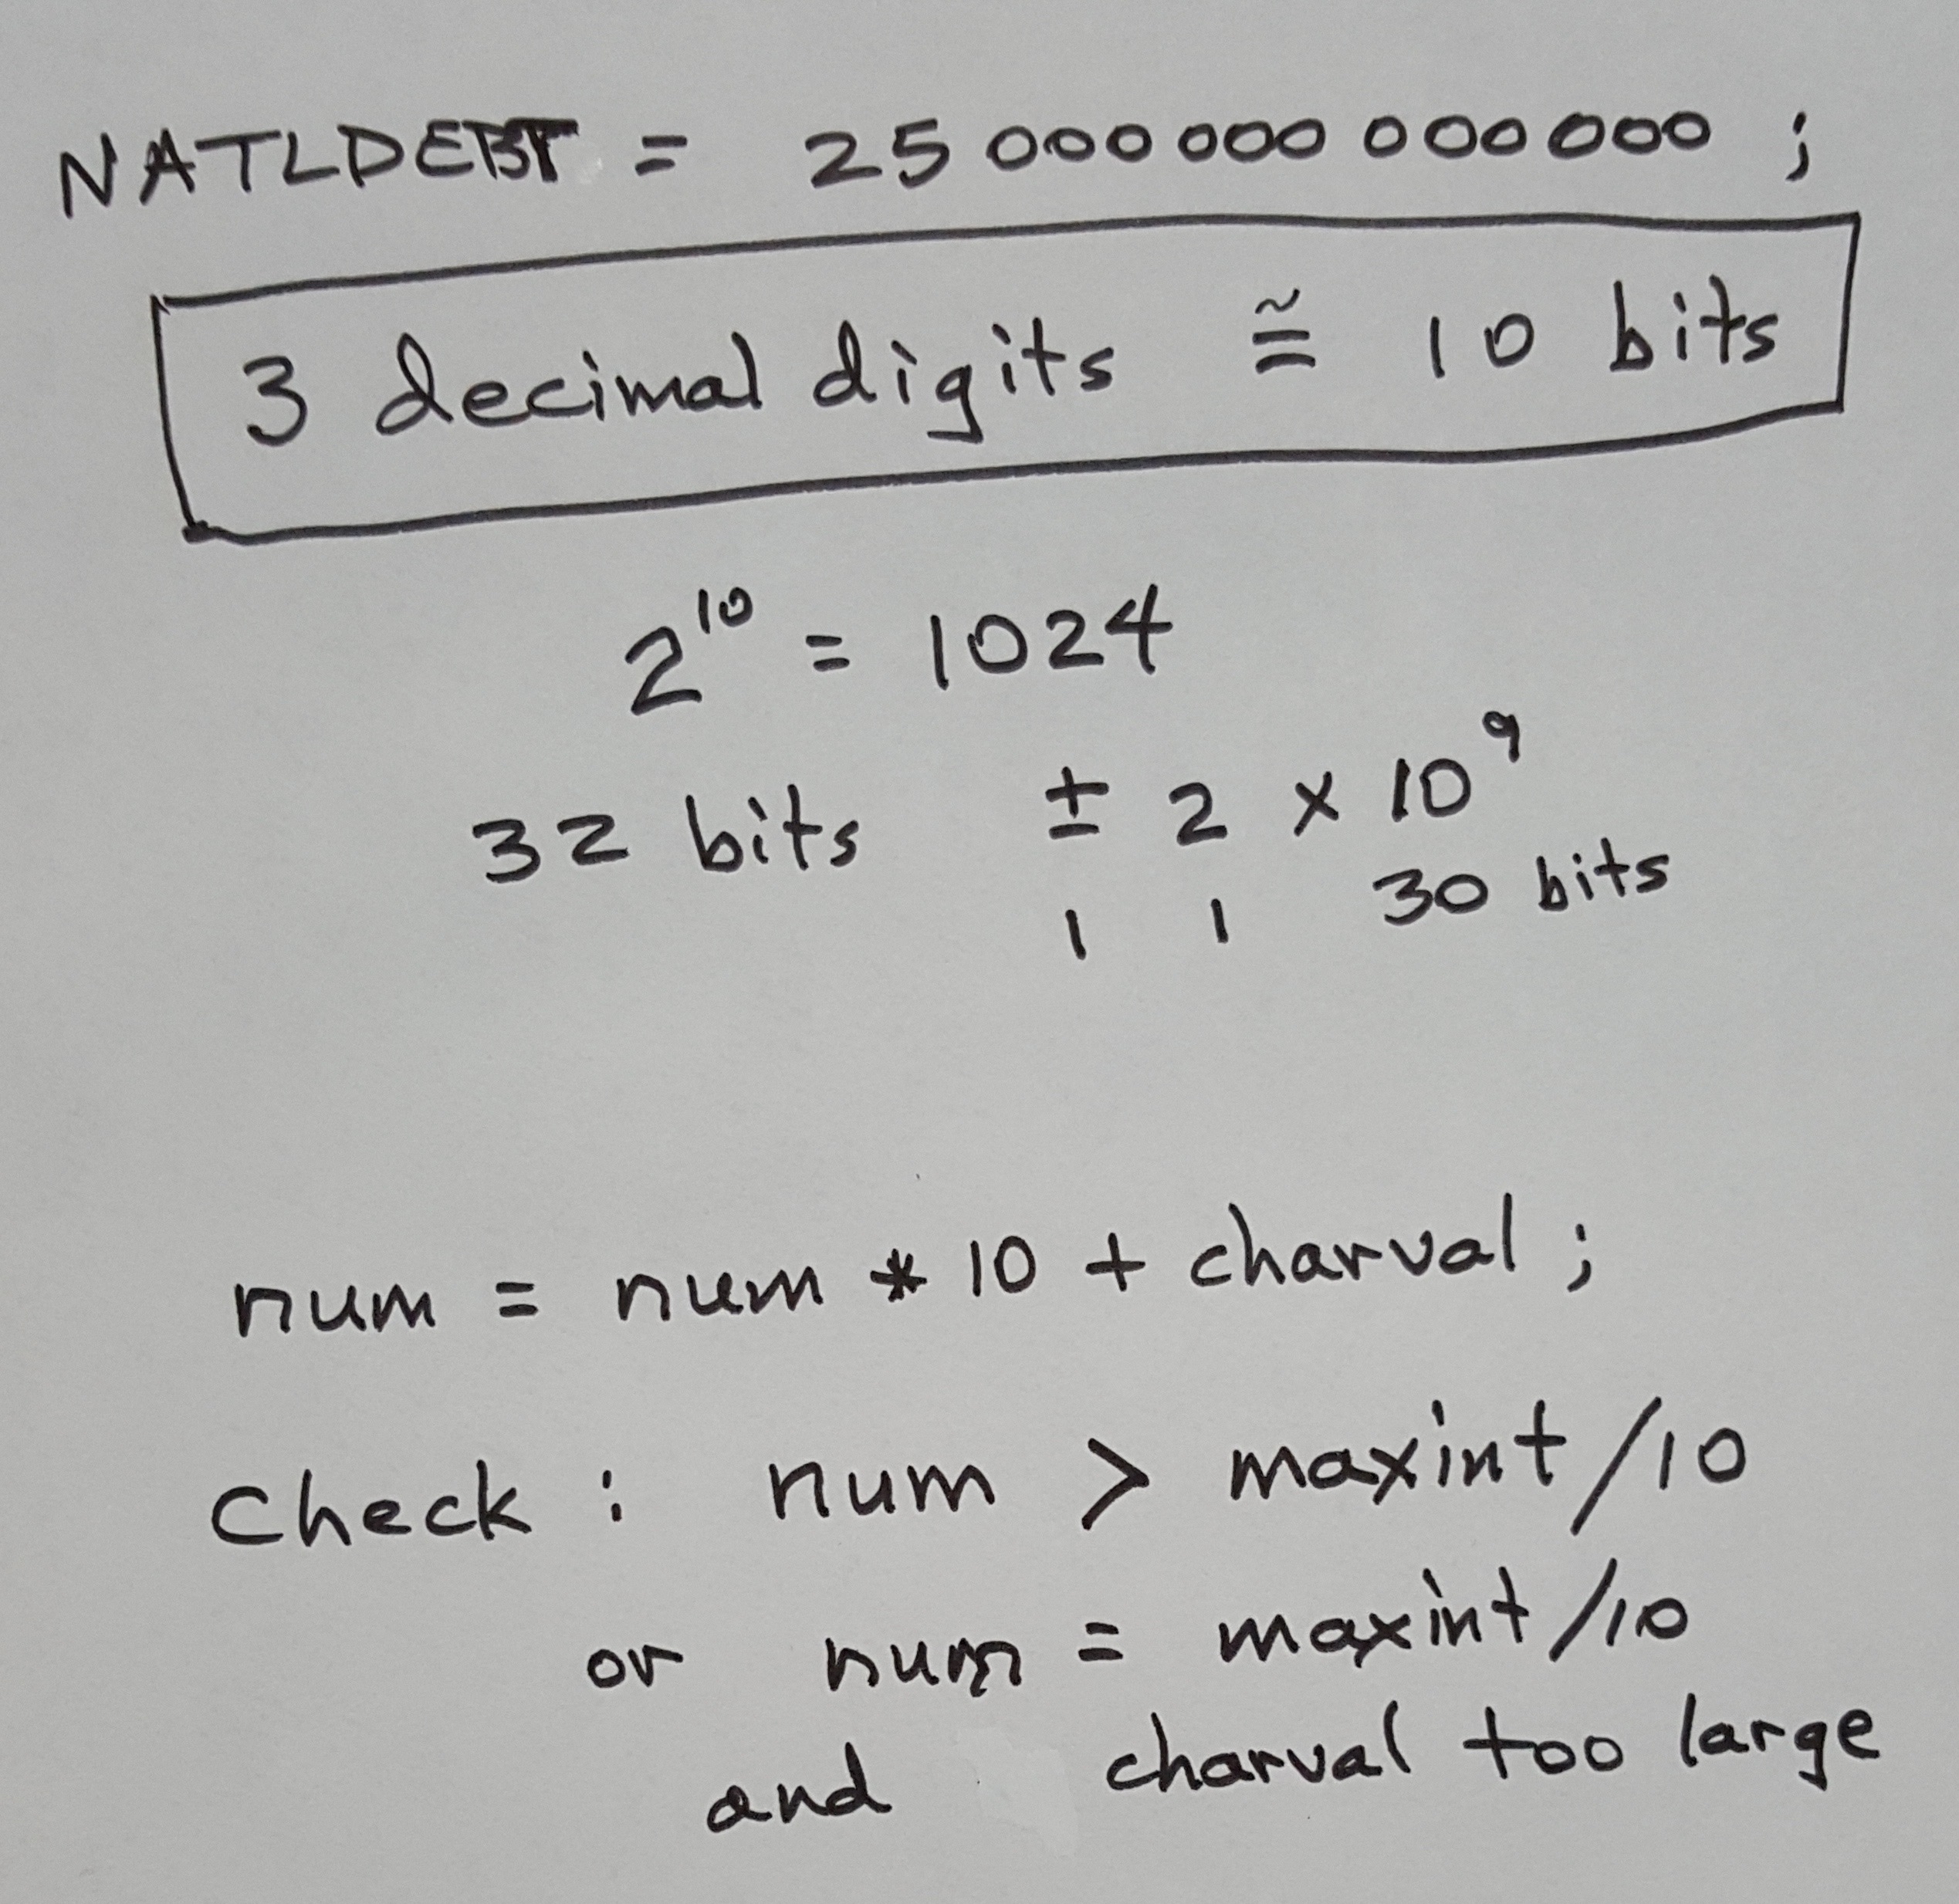 NATLDEBT = 25 000 000 000 000 ;
3 decimal digits ≅ 10 bits
2¹⁰ = 1024
32 bits ± 2 x 10⁹
1 1 30 bits
num = num * 10 + charval ;
Check : num > maxint/10
or num = maxint/10
and charval too large